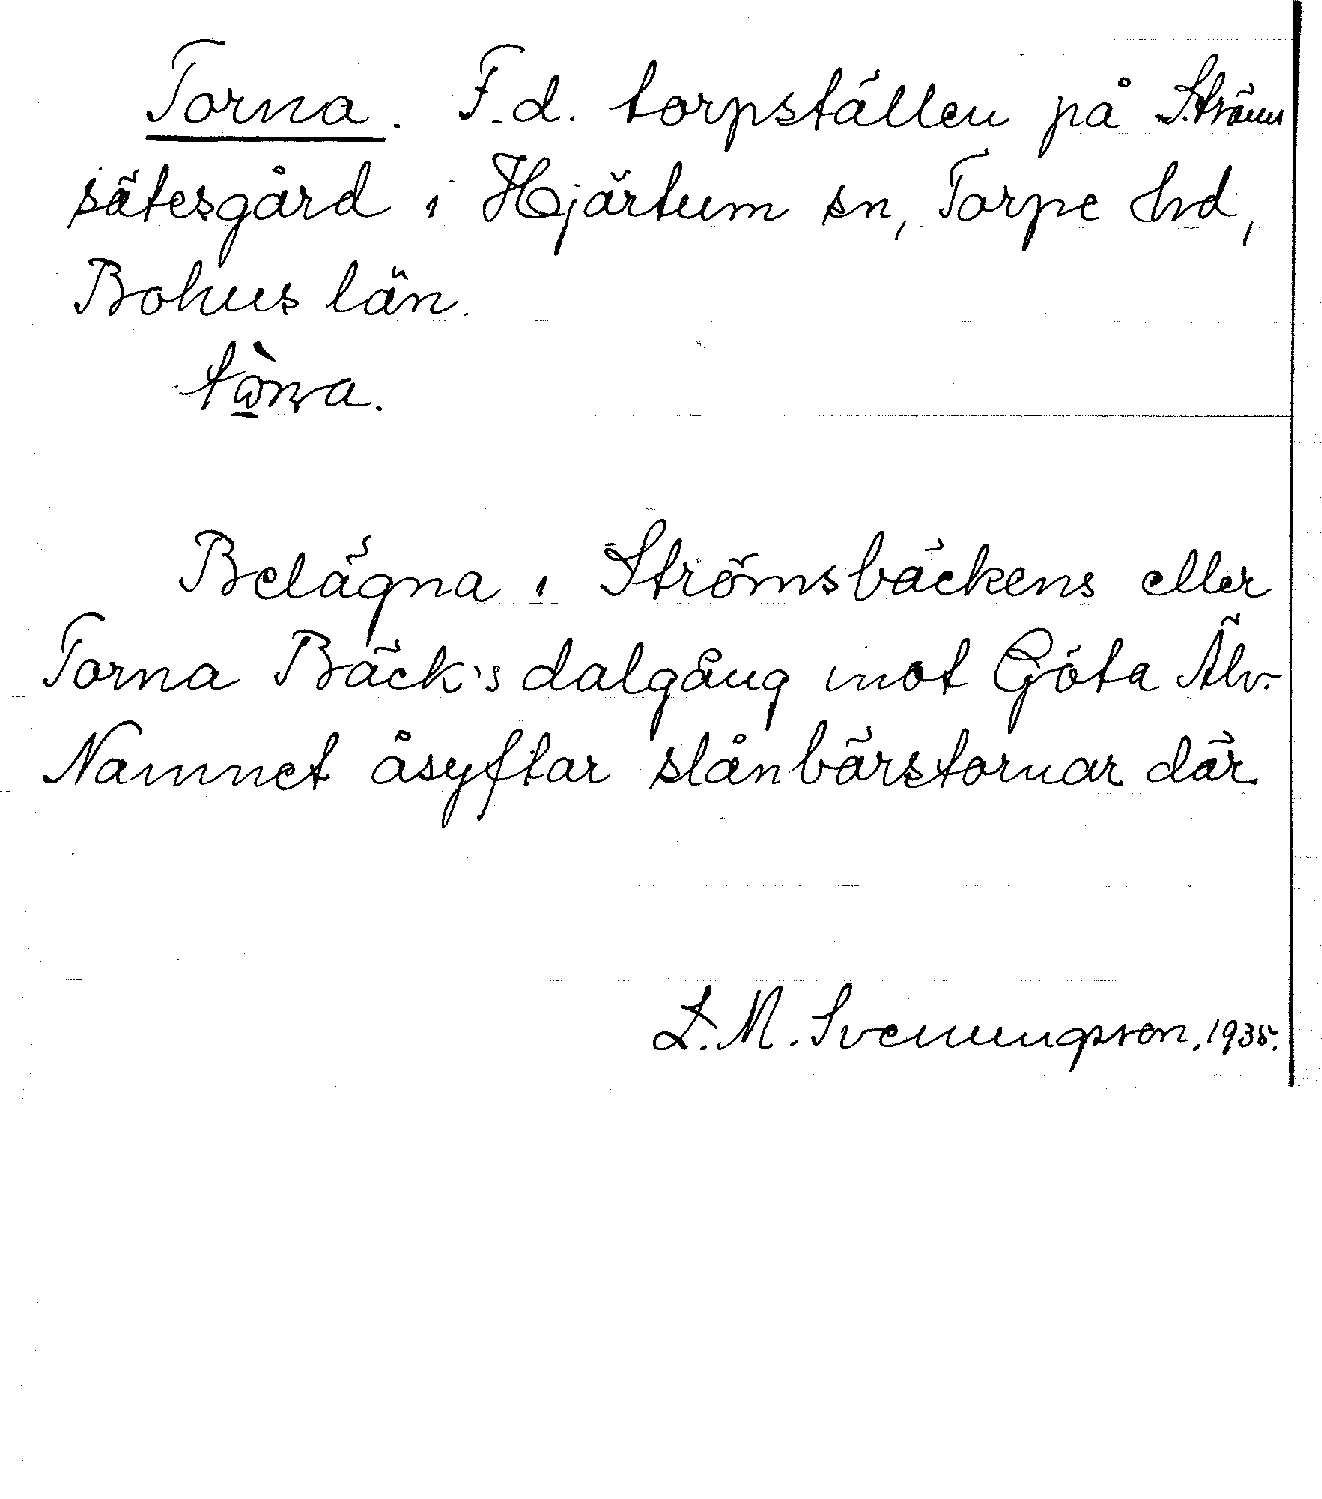 Torna. F.d. torpställen på Ströms
sätesgård i Hjärtum sn, Torpe hd,
Bohus län.
Belägna i Strömsbäckens eller
Torna Bäck's dalgång mot Göta Älv.
Namnet åsyftar slånbärstornar där
L.M. Svenungsson. 1935.